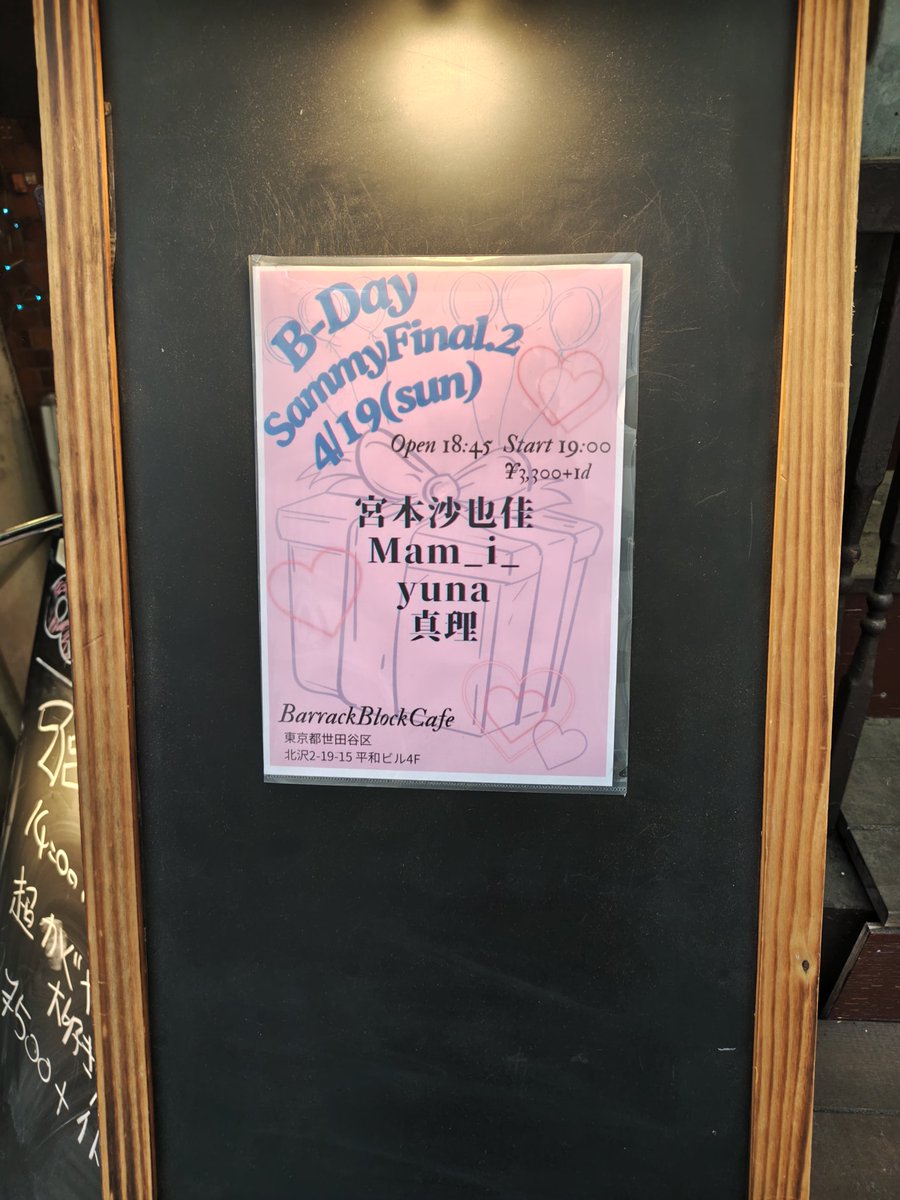 B-Day
SammyFinal.2
4/19(sun)
Open 18:45 Start 19:00
¥3,300+1d
宮本沙也佳
Mam_i_
yuna
真理
BarrackBlockCafe
東京都世田谷区
北沢2-19-15 平和ビル4F
14:00
超かぐ
¥500×